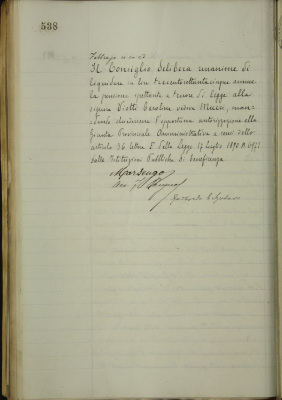 538
Il Consiglio delibera unanime di
liquidare in lire trecentottantacinque annue
la pensione spettante a termini di legge alla
signora Viotti Carolina vedova
chiedere l'opportuna autorizzazione alla
Giunta Provinciale Amministrativa a mente dello
articolo 36 lettera della Legge 17 luglio 1890 N. 6972
sulle Istituzioni Pubbliche di Beneficenza
Marsengo